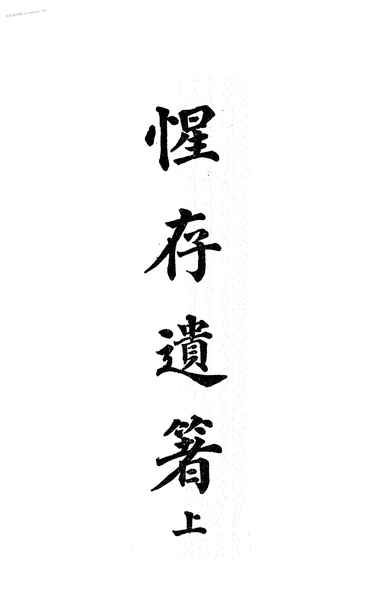 惺存遺箸
上